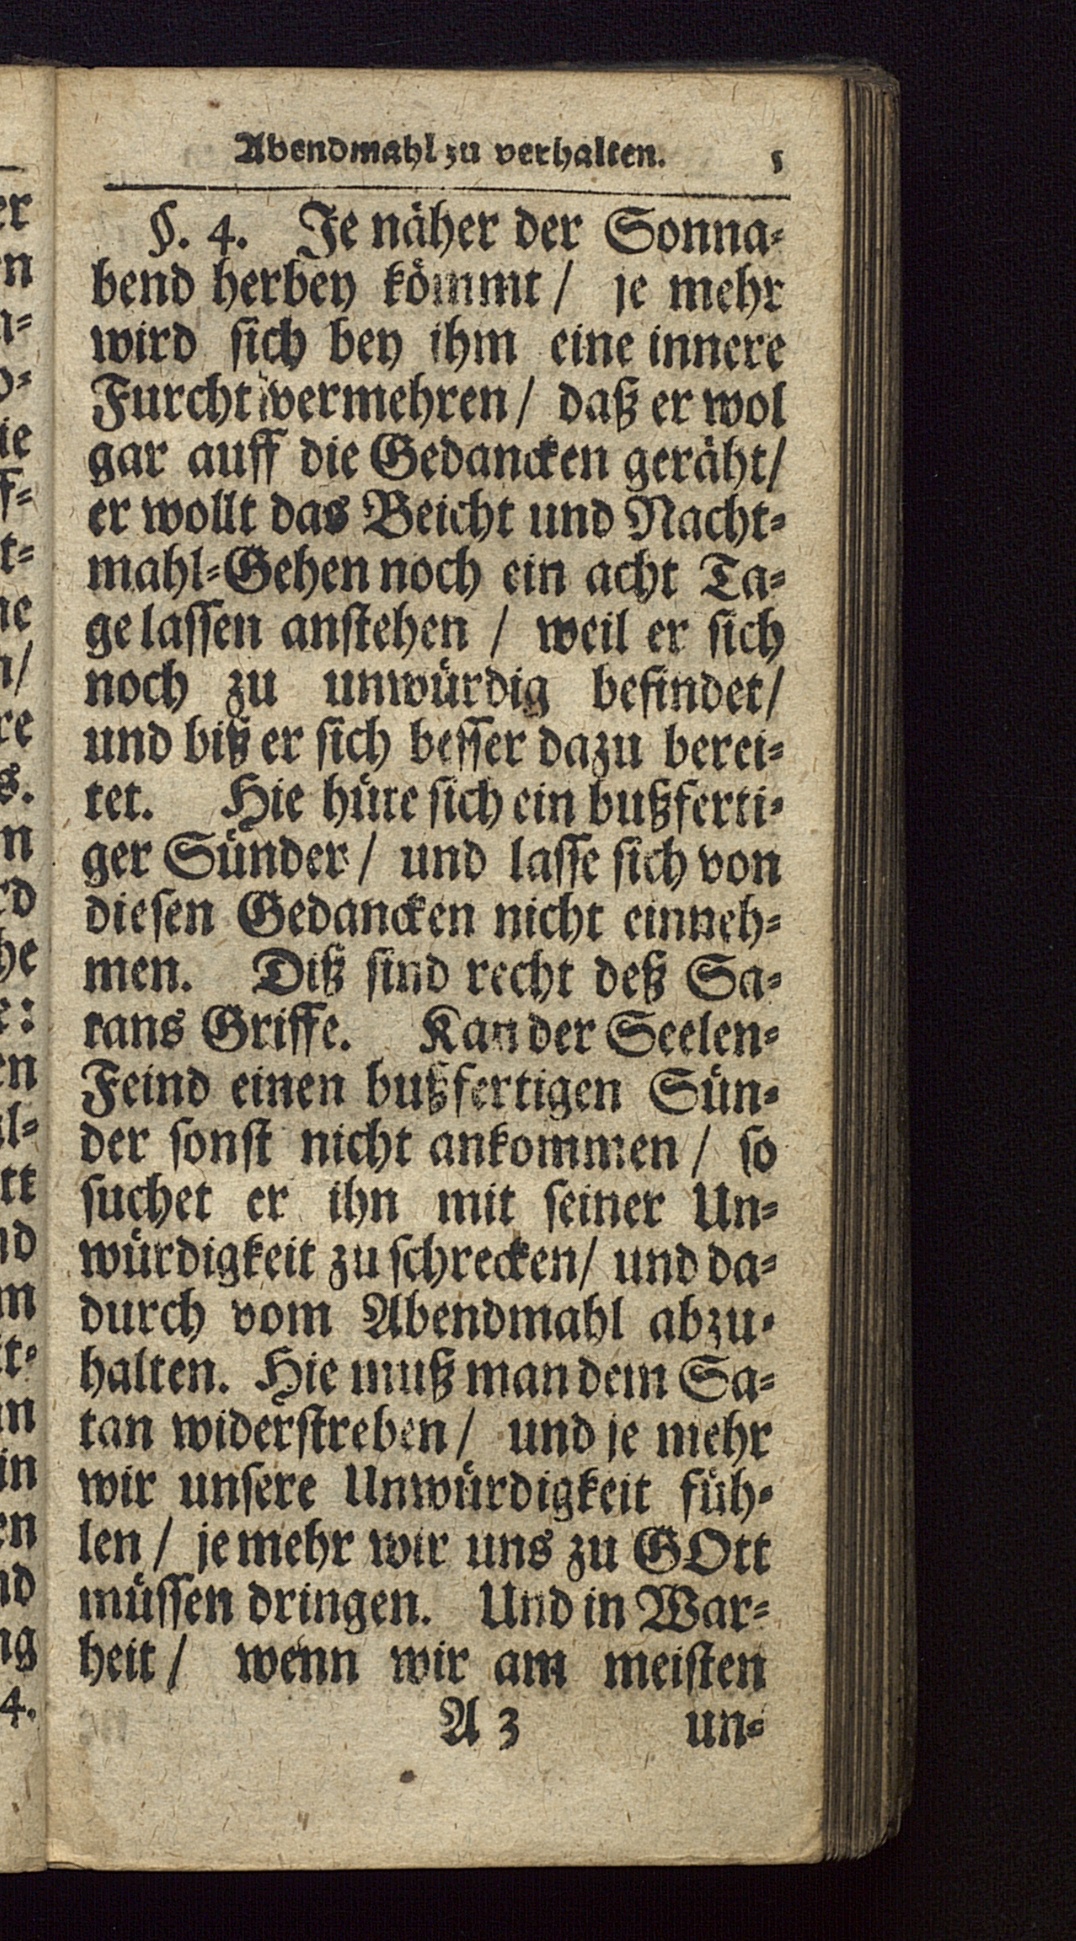 Abendmahl zu verhalten. 5
§. 4. Je näher der Sonna-
bend herbey kömmt / je mehr
wird sich bey ihm eine innere
Furcht vermehren / daß er wol
gar auff die Gedancken geräht /
er wollt das Beicht und Nacht-
mahl-Gehen noch ein acht Ta-
ge lassen anstehen / weil er sich
noch zu unwürdig befindet /
und biß er sich besser dazu berei-
tet. Hie hüte sich ein bußferti-
ger Sünder / und lasse sich von
diesen Gedancken nicht einneh-
men. Diß sind recht deß Sa-
tans Griffe. Kan der Seelen-
Feind einen bußfertigen Sün-
der sonst nicht ankommen / so
suchet er ihn mit seiner Un-
würdigkeit zu schrecken / und da-
durch vom Abendmahl abzu-
halten. Hie muß man dem Sa-
tan widerstreben / und je mehr
wir unsere Unwürdigkeit füh-
len / je mehr wir uns zu GOtt
müssen dringen. Und in War-
heit / wenn wir am meisten
A 3 un-